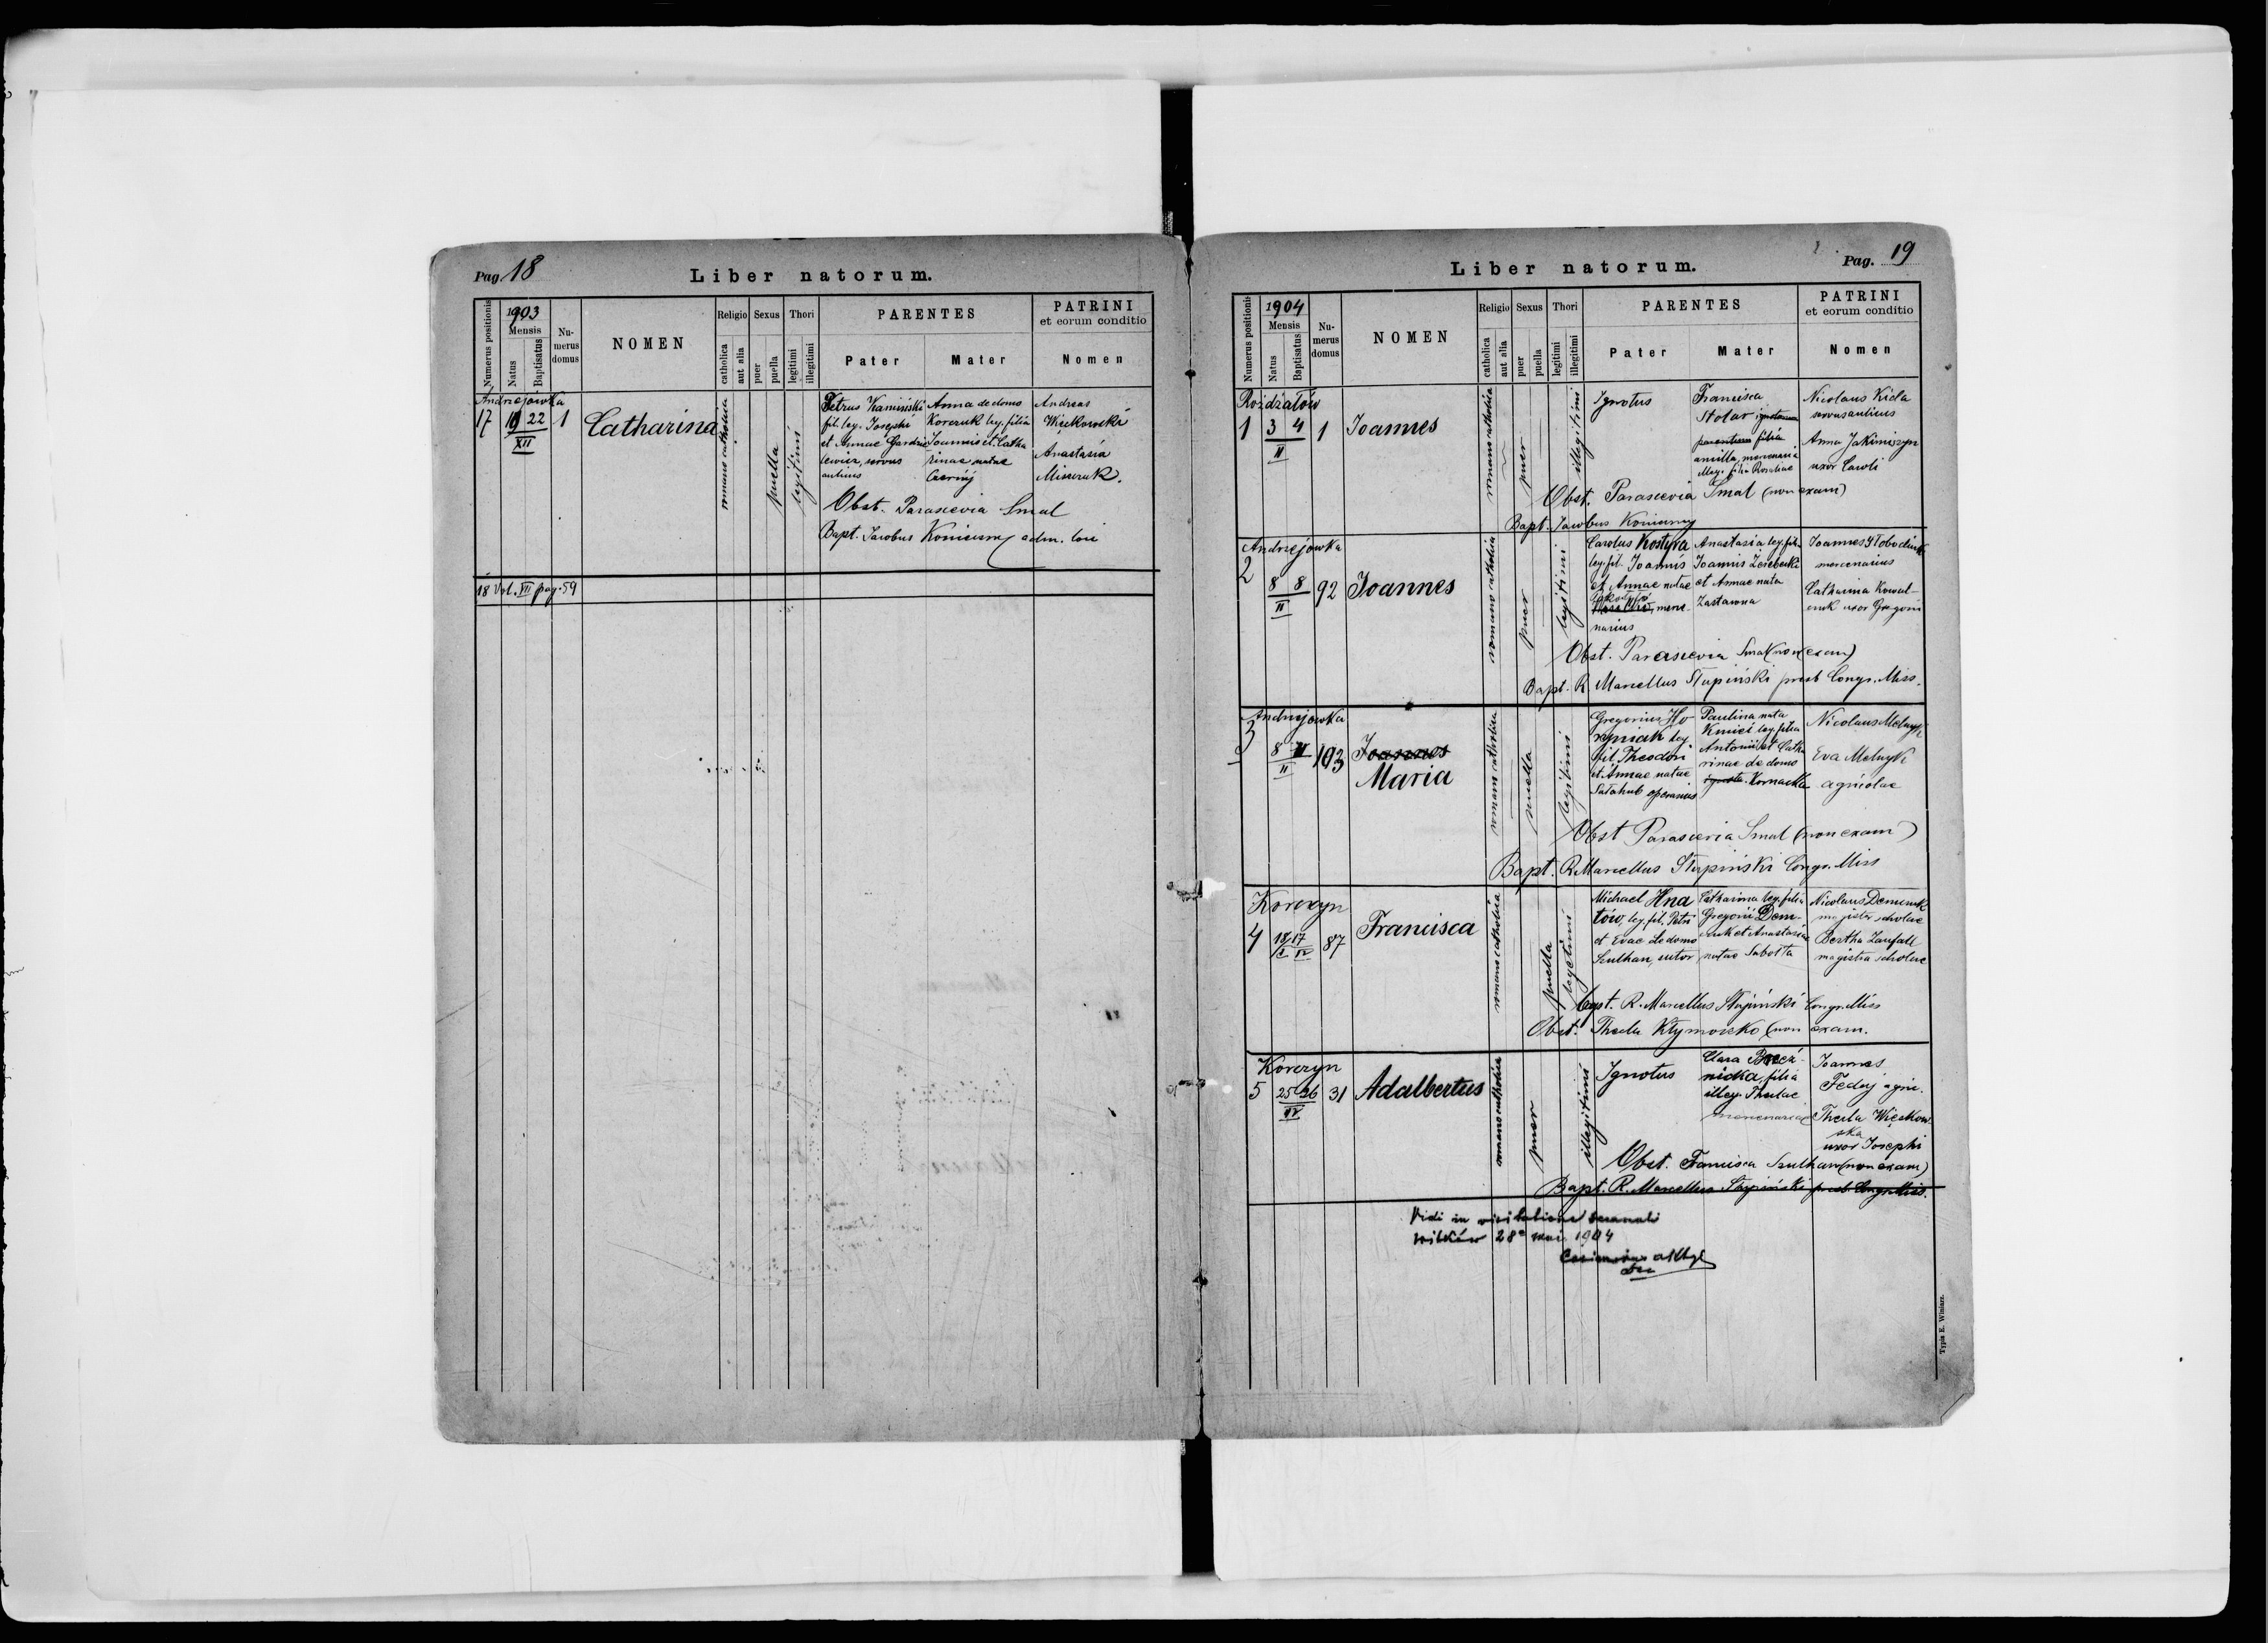 Pag. 18
Liber natorum.
Numerus positionis
1903
Mensis
Natus
Baptisatus
Nu-
merus
domus
NOMEN
Religio
catholica
aut alia
Sexus
puer
puella
Thori
legitimi
illegitimi
PARENTES
Pater
Mater
PATRINI
et eorum conditio
Nomen
Andrzejówka
17
19 22
XII
1
Catharina
romano catholica
puella
legitimi
Petrus Kamiński
fil. leg. Josephi
et Annae Gardzie
lewicz, servus
aulicus
Anna de domo
Korczuk leg. filia
Joannis et Catha
rinae natae
Czernij
Andreas
Więckowski
Anastasia
Misiurak.
Obst. Parascevia Smal
Bapt. Jacobus Konieczny adm. loci
18 Vol. VII pag. 59
Pag. 19
Liber natorum.
Numerus positionis
1904
Mensis
Natus
Baptisatus
Nu-
merus
domus
NOMEN
Religio
catholica
aut alia
Sexus
puer
puella
Thori
legitimi
illegitimi
PARENTES
Pater
Mater
PATRINI
et eorum conditio
Nomen
Rożdżałów
1
3 4
II
1
Joannes
romano catholica
puer
illegitimi
Ignotus
Francisca
Stolar ignotorum
parentum filia
ancilla, mercenaria
illeg. filia Rosaliae
Nicolaus Kicla
servus aulicus
Anna Jakimiszyn
uxor Caroli
Obst. Parascevia Smal (non exam)
Bapt. Jacobus Konieczny
Andrzejówka
2
8 8
II
92
Joannes
romano catholica
puer
legitimi
Carolus Kostyra
leg. fil. Joannis
et Annae natae
merce-
narius
Anastasia leg. filia
Joannis Żerebecki
et Annae nata
Zastawna
Joannes
mercenarius
Catharina Kowal-
czuk uxor Gregorii
Obst. Parascevia Smal (non exam)
Bapt. R. Marcellus Słupiński presb Congr. Miss.
Andrzejówka
3
8
II
103
Joannes
Maria
romano catholica
puella
legitimi
Gregorius Ho-
leg.
fil. Theodori
et Annae natae
Sałahub operarius
Paulina nata
Kmieć leg. filia
Antonii et Catha
rinae de domo
ignota Kornacka
Nicolaus Melnyk
Eva Melnyk
agricolae
Obst Parascevia Smal (non exam)
Bapt. R. Marcellus Słupiński Congr. Miss
Korczyn
4
18 17
IV
87
Francisca
romano catholica
puella
legitimi
Michael Hna
tów, leg. fil. Petri
et Evae de domo
Szulhan, sutor
Catharina leg. filia
Gregorii Dem-
czuk et Anastasiae
natae Sabotta
Nicolaus Demczuk
magister scholae
Bertha Zaufall
magistra scholae
Bapt. R. Marcellus Słupiński Congr. Miss
Obst. Thecla Kłymoszko (non exam.
Korczyn
5
25 26
IV
31
Adalbertus
romano catholica
puer
illegitimi
Ignotus
Clara
nicka, filia
illeg. Theclae
mercenaria
Joannes
Fedaj agric.
Thecla Więckow-
ska
uxor Josephi
Obst. Francisca Szulhan (non exam)
Bapt. R. Marcellus Słupiński presb. Congr. Miss.
Vidi in visitatione decanali
Witków 28a maii 1904
Typis E. Winiarz.